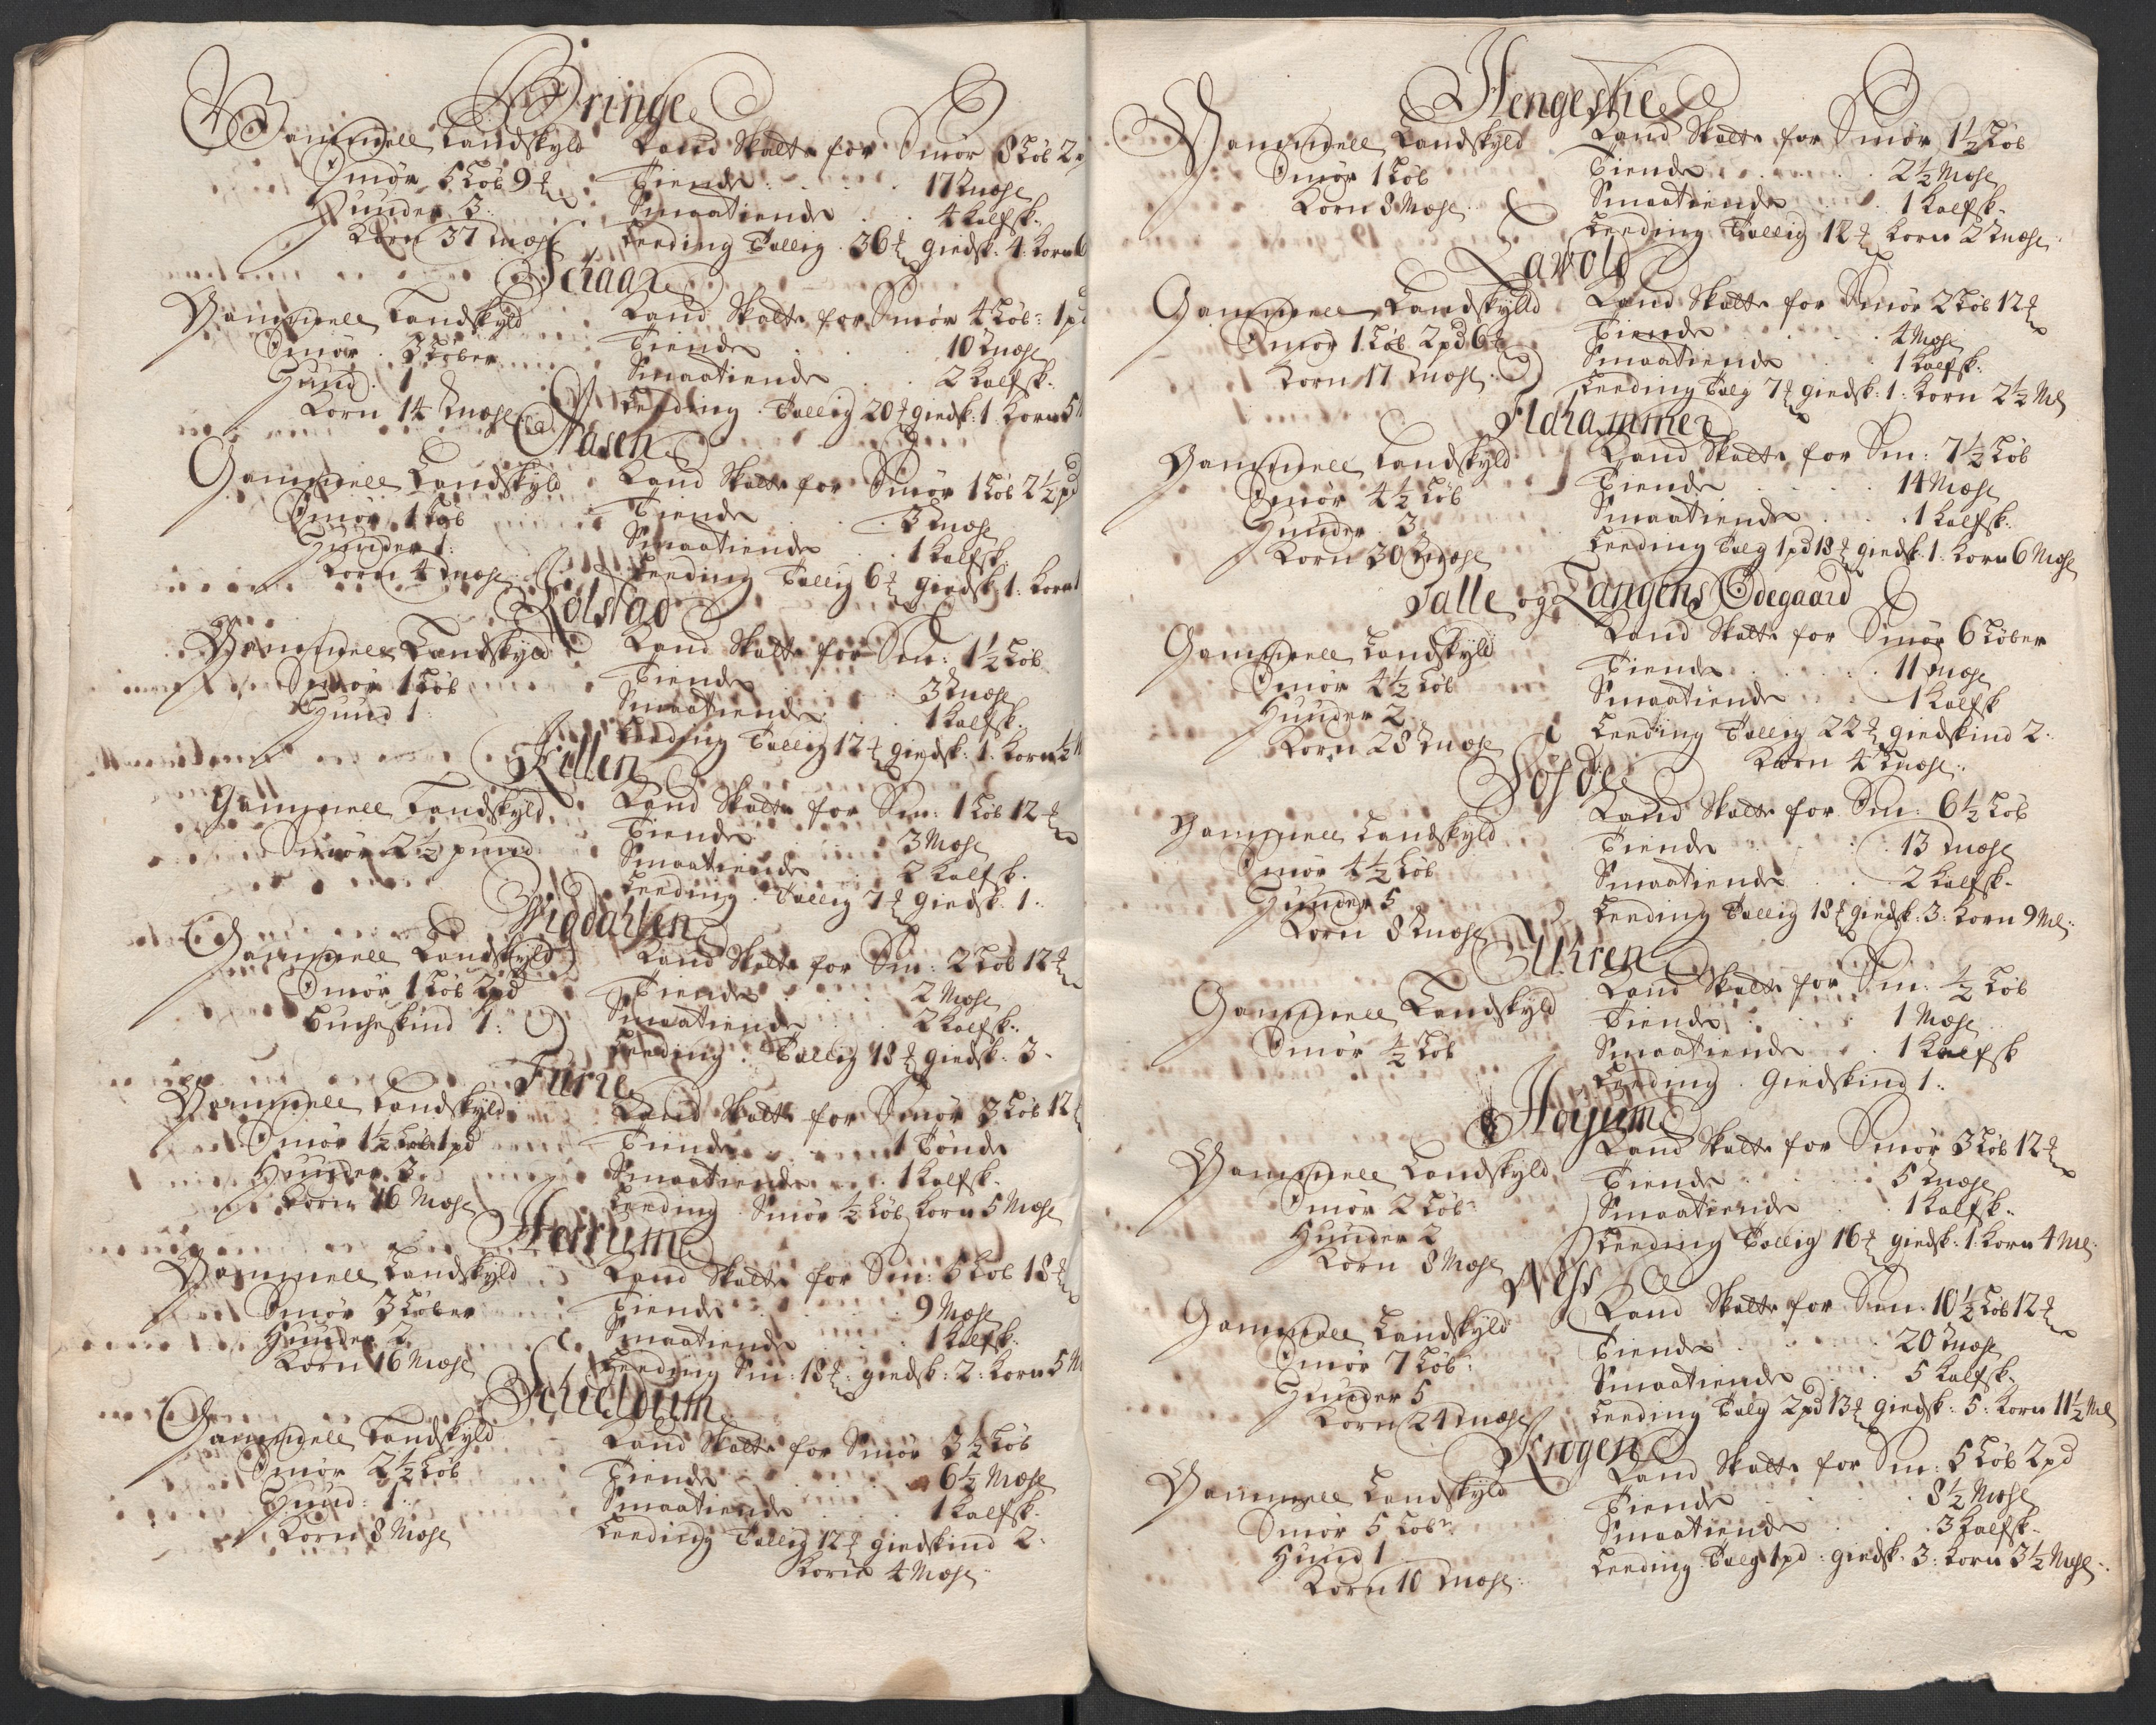 Bringe
Gammell Landskyld
Smør 5 Løb 9 ℔
Huuder 3
Korn 37 Mæhl
Land Skatt for Smør 8 Løb 2
Tiende . . . 17 Mæhl
Smaatiende . . 4 Kalfsk.
Leeding Tallig 36 ℔ giedsk. 4: Korn 6
Schaar
Gammell Landskyld
Smør 3 Løber
Huud 1
Korn 14 Mæhl
Land Skatt for Smør 4 Løb: 1 pd
Tiende . . . 10 Mæhl
Smaatiende . . 2 Kalfsk.
Leeding. Tallig 20 ℔ giedsk: 1. Korn 5
Aasen
Gammell Landskyld
Smør 1 Løb
Huuder 1:
Korn 4 Mæhl
Land Skatt for Smør 1 Løb 2½ pd
Tiende . . 3 Mæhl
Smaatiende . . 1 Kalfsk
Leeding Tallig 6 ℔ giedsk 1: Korn 1
Rolstad
Gammell Landskyld
Smør 1 Løb
Huud 1
Land Skatt for Sm: 1½ Løb
Tiende . . 3 Mæhl
Smaatiende . . 1 Kalfsk.
Leeding Tallig 12 ℔ giedsk: 1. Korn ½
Fillen
Gammell Landskyld
Smør 2½ pund
Land Skatt for Sm: 1 Løb 12 ℔
Tiende . . 3 Mæhl
Smaatiende . . 2 Kalfsk.
Leeding. Tallig 7 ℔ giedsk. 1:
Wigdahlen
Gammell Landskyld
Smør 1 Løb 2 pd
Bucheskind 1:
Land Skatt for Sm: 2 Løb 12 ℔
Tiende . . 2 Mæhl
Smaatiende . . 2 Kalfsk:
Leeding. Tallig 18 ℔ giedsk. 3
Furie
Gammell Landskyld
Smør 1½ Løb 1 pd
Huuder 3
Korn 16 Mæhl
Land Skatt for Smør 3 Løb 12 ℔
Tiende . . 1 Tønde
Smaatiende . . 1 Kalfsk.
Leeding. Smør ½ Løb Korn 5 Mæhl
Herrum
Gammell Landskyld
Smør 3 Løber
Huuder 2
Korn 16 Mæhl
Land Skatt for Sm: 5 Løb 18 ℔
Tiende . . 9 Mæhl
Smaatiende . . 1 Kalfsk.
Leeding Sm: 18 ℔: giedsk: 2: Korn 5 M
Schieldum
Gammell Landskyld
Smør 2½ Løb
Huud: 1
Korn 8 Mæhl
Land Skatt for Smør 3½ Løb
Tiende . . 6½ Mæhl
Smaatiende . . 1 Kalfsk.
Leeding Tallig 12 ℔ giedskind 2:
Korn 4 Mæhl
Hengeshie
Gammell Landskyld
Smør 1 Løb
Korn 8 Mæhl
Land Skatt for Smør 1½ Løb
Tiende . . . 2½ Mæhl
Smaatiende . . 1 Kalfsk.
Leeding Tallig 12 ℔ Korn 2 Mæhl
Lavold
Gammell Landskyld
Smør 1 Løb 2 pd 6 ℔
Korn 17 Mæhl
Land Skatt for Smør 2 Løb 12 ℔
Tiende . . . 4 Mæhl
Smaatiende . . 1 Kalfsk:
Leeding Talg 7 ℔ giedsk: 1: Korn 2½ Ml
Fldhammer
Gammell Landskyld
Smør 4½ Løb
Huuder 3
Korn 30 Mæhl
Land Skatt for Sm: 7½ Løb
Tiende . . . 14 Mæhl
Smaatiende . . 1 Kalfsk.
Leeding Talg 1 pd 18 ℔ giedsk. 1. Korn 6 Mæhl
Talle og Langens Ødegaard
Gammell Landskyld
Smør 4½ Løb
Huuder 2
Korn 28 Mæhl
Land Skatt for Smør 6 Løber
Tiende . . . 11 Mæhl
Smaatiende . . 1 Kalfsk
Leeding Tallig 22 ℔ giedskind 2:
Korn 4 Mæhl
Søsde
Gammell Landskyld
Smør 4½ Løb
Huuder 5
Korn 8 Mæhl
Land Skatt for Sm: 6½ Løb
Tiende . . . 13 Mæhl
Smaatiende . . 2 Kalfsk.
Leeding Tallig 18 ℔ giedsk: 3: Korn 9 Ml:
Ukren
Gammell Landskyld
Smør ½ Løb
Land Skatt for Sm: ½ Løb
Tiende . . . 1 Mæhl
Smaatiende . . 1 Kalfsk
Leeding. Giedskind 1:
Høyum
Gammell Landskyld
Smør 2 Løb
Huuder 2
Korn 8 Mæhl
Land Skatt for Smør 3 Løb 12 ℔
Tiende . . . 5 Mæhl
Smaatiende . . 1 Kalfsk.
Leeding Tallig 16 ℔ giedsk: 1: Korn 4 Ml:
Ness
Gammell Landskyld
Smør 7 Løb:
Huuder 5
Korn 24 Mæhl
Land Skatt for Sm: 10½ Løb 12 ℔
Tiende . . . 20 Mæhl
Smaatiende . . 5 Kalfsk.
Leeding Talg 2 pd 13 ℔ giedsk: 5: Korn 11½ Ml
Krogen
Gammell Landskyld
Smør 5 Løbr
Huud 1
Korn 10 Mæhl
Land Skatt for Sm: 5 Løb 2 pd
Tiende . . . 8½ Mæhl
Smaatiende . . 3 Kalfsk.
Leeding. Talg 1 pd: giedsk. 3: Korn 3½ Mæhl